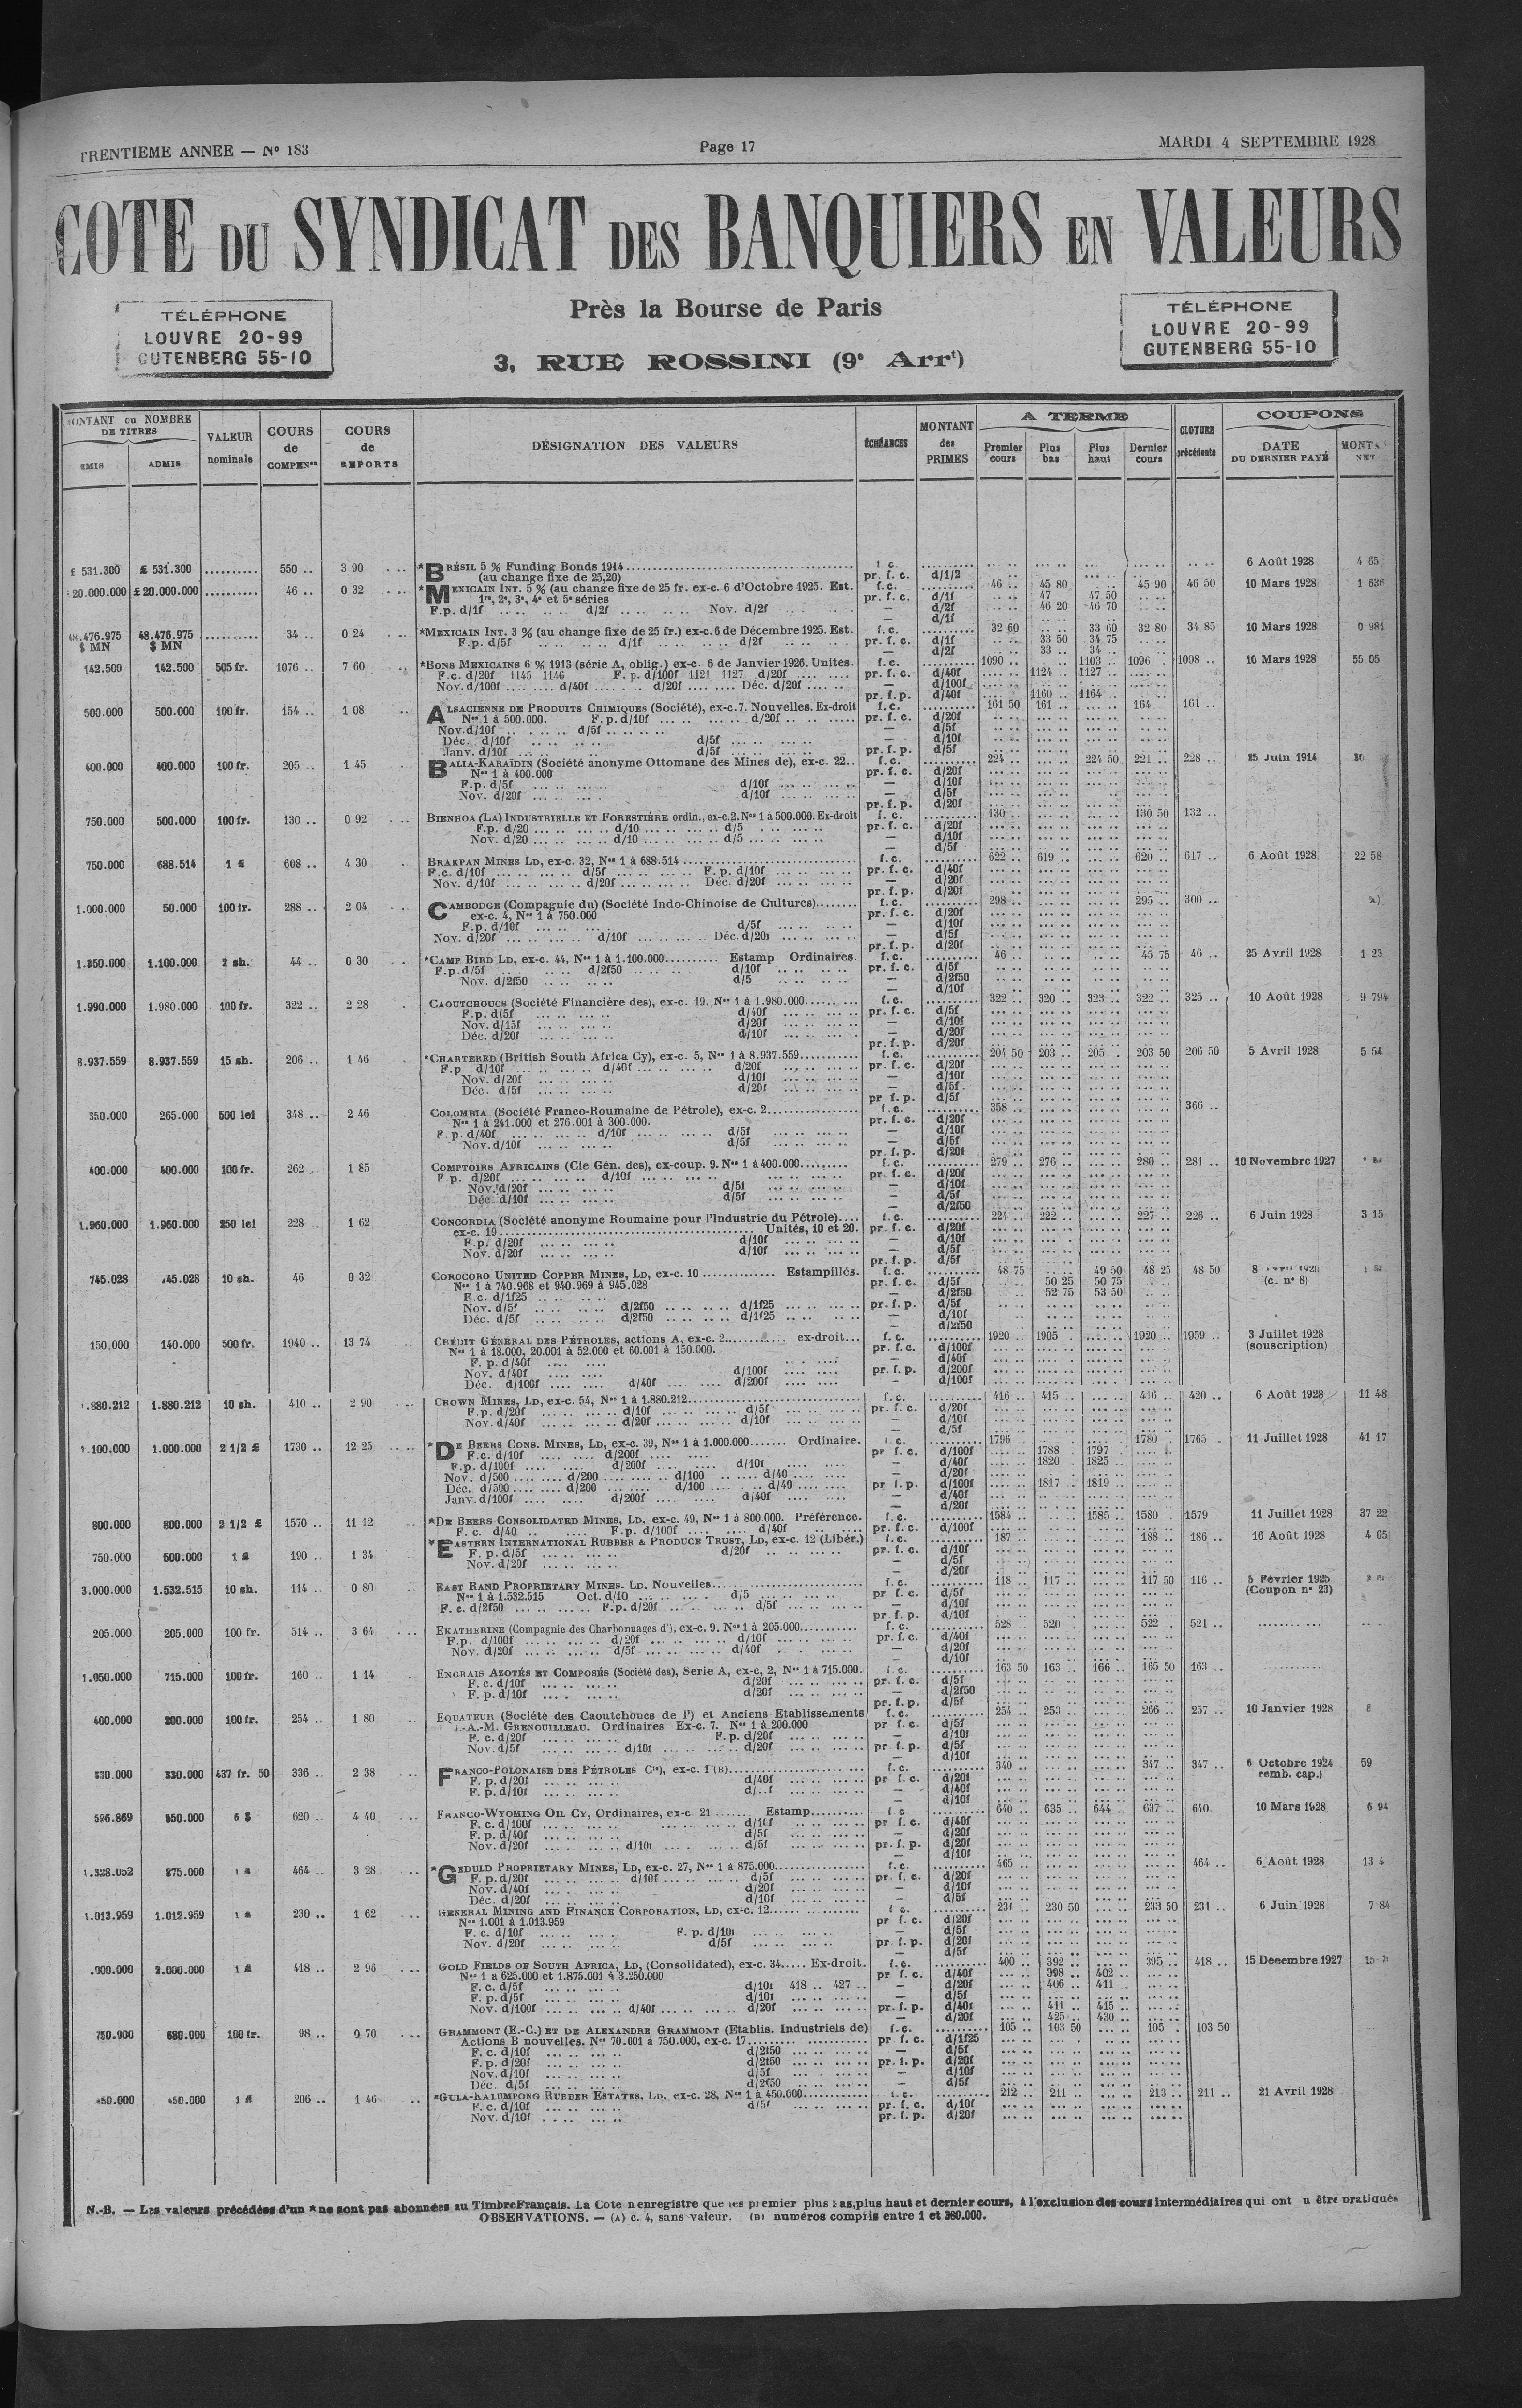 TRENTIEME ANNEE — No 183
Page 17
MARDI 4 SEPTEMBRE 1928
COTE DU SYNDICAT DES BANQUIERS EN VALEURS
TÉLÉPHONE
LOUVRE 20-99
GUTENBERG 55-10
Près la Bourse de Paris
3, RUE ROSSINI (9e Arrt)
TÉLÉPHONE
LOUVRE 20-99
GUTENBERG 55-10
MONTANT ou NOMBRE DE TITRES
ÉMIS ADMIS
VALEUR nominale
COURS de COMPENon
COURS de REPORTS
DÉSIGNATION DES VALEURS
ÉCHÉANCES
MONTANT des PRIMES
A TERME
Premier cours Plus bas Plus haut Dernier cours
CLOTURE précédente
COUPONS
DATE DU DERNIER PAYÉ
MONTt NET
£ 531.300 £ 531.300 .......... 550 .. 3 90 *BRÉSIL 5 % Funding Bonds 1914 f. c. 6 Août 1928 4 65
(au change fixe de 25,20) pr. f. c. d/1/2
20.000.000 £ 20.000.000 .......... 46 .. 0 32 *MEXICAIN INT. 5 % (au change fixe de 25 fr. ex-c. 6 d'Octobre 1925. Est. f. c. 46 .. 45 80 45 90 46 50 10 Mars 1928 1 636
1re, 2e, 3e, 4e et 5e séries pr. f. c. d/1f 47 47 50
F.p. d/1f d/2f Nov. d/2f — d/2f 46 20 46 70
— d/1f
48.476.975 $ MN 48.476.975 $ MN .......... 34 .. 0 24 *MEXICAIN INT. 3 % (au change fixe de 25 fr.) ex-c. 6 de Décembre 1925. Est. f. c. 32 60 33 60 32 80 34 85 10 Mars 1928 0 981
F.p. d/5f d/1f d/2f pr. f. c. d/1f 33 50 34 75
— d/2f 33 .. 34 ..
142.500 142.500 505 fr. 1076 .. 7 60 *BONS MEXICAINS 6 % 1913 (série A, oblig.) ex-c. 6 de Janvier 1926. Unites. f. c. 1090 .. 1103 .. 1096 . 1098 .. 10 Mars 1928 55 05
F.c. d/20f 1145 1146 F. p. d/100f 1121 1127 d/20f pr. f. c. d/40f 1124 .. 1127 ..
Nov. d/100f d/40f d/20f Déc. d/20f — d/100f
pr. f. p. d/40f 1160 .. 1164 ..
500.000 500.000 100 fr. 154 .. 1 08 ALSACIENNE DE PRODUITS CHIMIQUES (Société), ex-c. 7. Nouvelles. Ex-droit f. c. 161 50 161 .. 164 .. 161 ..
Nos 1 à 500.000. F.p. d/10f d/20f pr. f. c. d/20f
Nov. d/10f d/5f — d/5f
Déc. d/10f d/5f — d/10f
Janv. d/10f d/5f pr. f. p. d/5f
400.000 400.000 100 fr. 205 .. 1 45 BALIA-KARAÏDIN (Société anonyme Ottomane des Mines de), ex-c. 22.. f. c. 224 .. 224 50 221 .. 228 .. 25 Juin 1914
Nos 1 à 400.000 pr. f. c. d/20f
F.p. d/5f d/10f — d/10f
Nov. d/20f d/10f — d/5f
pr. f. p. d/20f
750.000 500.000 100 fr. 130 .. 0 92 BIENHOA (LA) INDUSTRIELLE ET FORESTIÈRE ordin., ex-c. 2. Nos 1 à 500.000. Ex-droit f. c. 130 .. 130 50 132 ..
F.p. d/20 d/10 d/5 pr. f. c. d/20f
Nov. d/20 d/10 d/5 — d/10f
— d/5f
750.000 688.514 1 £ 608 .. 4 30 BRAKPAN MINES LD, ex-c. 32, Nos 1 à 688.514 f. c. 622 .. 619 .. 620 .. 617 .. 6 Août 1928 22 58
F.c. d/10f d/5f F. p. d/10f pr. f. c. d/40f
Nov. d/10f d/20f Déc. d/20f — d/20f
pr. f. p. d/20f
1.000.000 50.000 100 fr. 288 .. 2 04 CAMBODGE (Compagnie du) (Société Indo-Chinoise de Cultures) f. c. 298 .. 295 .. 300 ..
ex-c. 4, Nos 1 à 750.000 pr. f. c. d/20f
F.p. d/10f d/5f — d/10f
Nov. d/20f d/10f Déc. d/20f — d/5f
pr. f. p. d/20f
1.350.000 1.100.000 2 sh. 44 .. 0 30 *CAMP BIRD LD, ex-c. 44, Nos 1 à 1.100.000 Estamp Ordinaires f. c. 46 .. 45 75 46 .. 25 Avril 1928 1 23
F.p. d/5f d/2f50 d/10f pr. f. c. d/5f
Nov. d/2f50 d/5 — d/2f50
— d/10f
1.990.000 1.980.000 100 fr. 322 .. 2 28 CAOUTCHOUCS (Société Financière des), ex-c. 19. Nos 1 à 1.980.000 f. c. 322 .. 320 .. 323 .. 322 .. 325 .. 10 Août 1928 9 794
F.p. d/5f d/40f pr. f. c. d/5f
Nov. d/15f d/20f — d/10f
Déc. d/20f d/10f — d/20f
pr. f. p. d/20f
8.937.559 8.937.559 15 sh. 206 .. 1 46 *CHARTERED (British South Africa Cy), ex-c. 5, Nos 1 à 8.937.559 f. c. 204 50 203 .. 205 . 203 50 206 50 5 Avril 1928 5 54
F.p d/10f d/40f d/20f pr. f. c. d/20f
Nov. d/20f d/10f — d/10f
Déc. d/5f d/20f — d/5f
pr f. p. d/5f
350.000 265.000 500 lei 348 .. 2 46 COLOMBIA (Société Franco-Roumaine de Pétrole), ex-c. 2 f. c. 358 .. 366 ..
Nos 1 à 241.000 et 276.001 à 300.000. pr. f. c. d/20f
F. p. d/40f d/10f d/5f — d/10f
Nov. d/10f d/5f — d/5f
pr. f. p. d/20f
400.000 400.000 100 fr. 262 . 1 85 COMPTOIRS AFRICAINS (Cie Gén. des), ex-coup. 9. Nos 1 à 400.000 f. c. 279 .. 276 .. 280 .. 281 .. 10 Novembre 1927
F p. d/20f d/10f pr. f. c. d/20f
Nov. d/20f d/5f — d/10f
Déc. d/10f d/5f — d/5f
— d/2f50
1.960.000 1.960.000 250 lei 228 . 1 62 CONCORDIA (Société anonyme Roumaine pour l'Industrie du Pétrole) f. c. 224 .. 222 .. 227 .. 226 .. 6 Juin 1928 3 15
ex-c. 19 Unités, 10 et 20. pr. f. c. d/20f
F.p. d/20f d/10f — d/10f
Nov. d/20f d/10f — d/5f
pr. f. p. d/5f
745.028 745.028 10 sh. 46 0 32 COROCORO UNITED COPPER MINES, LD, ex-c. 10 Estampillés. f. c. 48 75 49 50 48 25 48 50 8
Nos 1 à 740.968 et 940.969 à 945.028 pr. f. c. d/5f 50 25 50 75 (c. no 8)
F.c. d/1f25 — d/2f50 52 75 53 50
Nov. d/5f d/2f50 d/1f25 pr. f. p. d/5f
Déc. d/5f d/2f50 d/1f25 — d/10f
— d/2f50
150.000 140.000 500 fr. 1940 .. 13 74 CRÉDIT GÉNÉRAL DES PÉTROLES, actions A, ex-c. 2 ex-droit f. c. 1920 .. 1905 . 1920 .. 1959 .. 3 Juillet 1928
Nos 1 à 18.000, 20.001 à 52.000 et 60.001 à 150.000. pr. f. c. d/100f (souscription)
F. p. d/40f — d/40f
Nov. d/40f d/100f pr. f. p. d/200f
Déc. d/100f d/40f d/200f — d/100f
1.880.212 1.880.212 10 sh. 410 .. 2 90 CROWN MINES, LD, ex-c. 54, Nos 1 à 1.880.212 f. c. 416 .. 415 .. 416 .. 420 .. 6 Août 1928 11 48
F.p. d/20f d/10f d/5f pr. f. c. d/20f
Nov. d/40f d/20f d/10f — d/10f
— d/5f
1.100.000 1.000.000 2 1/2 £ 1730 .. 12 25 *DE BEERS CONS. MINES, LD, ex-c. 39, Nos 1 à 1.000.000 Ordinaire. f. c. 1796 1780 1765 . 11 Juillet 1928 41 17
F.c. d/10f d/200f pr f. c. d/100f 1788 1797
F.p. d/100f d/200f d/10f — d/40f 1820 . 1825 ..
Nov. d/500 d/200 d/100 d/40 — d/20f
Déc. d/500 d/200 d/100 d/40 pr f. p. d/100f 1817 .. 1819 ..
Janv. d/100f d/200f d/40f — d/40f
— d/20f
800.000 800.000 2 1/2 £ 1570 .. 11 12 *DE BEERS CONSOLIDATED MINES, LD, ex-c. 49, Nos 1 à 800.000. Préférence. f. c. 1584 .. 1585 .. 1580 . 1579 11 Juillet 1928 37 22
F. c. d/40 F.p. d/100f d/40f pr. f. c. d/100f
750.000 500.000 1 £ 190 .. 1 34 *EASTERN INTERNATIONAL RUBBER & PRODUCE TRUST, LD, ex-c. 12 (Libér.) f. c. 187 .. 188 .. 186 .. 16 Août 1928 4 65
F. p. d/5f d/20f pr. f. c. d/10f
Nov. d/20f — d/5f
— d/20f
3.000.000 1.532.515 10 sh. 114 .. 0 80 EAST RAND PROPRIETARY MINES. LD, Nouvelles f. c. 118 .. 117 .. 117 50 116 .. 5 Février 1925
Nos 1 à 1.532.515 Oct. d/10 d/5 pr f. c. d/5f (Coupon no 23)
F. c. d/2f50 F.p. d/20f d/5f — d/10f
pr f. p. d/10f
205.000 205.000 100 fr. 514 .. 3 64 EKATHERINE (Compagnie des Charbonnages d'), ex-c. 9. Nos 1 à 205.000 f. c. 528 520 522 . 521 ..
F.p. d/100f d/20f d/10f pr. f. c. d/40f
Nov. d/20f d/5f d/40f — d/20f
— d/10f
1.050.000 715.000 100 fr. 160 .. 1 14 ENGRAIS AZOTÉS ET COMPOSÉS (Société des), Serie A, ex-c, 2, Nos 1 à 715.000. f. c. 163 50 163 .. 166 .. 165 50 163 ..
F. c. d/10f d/20f pr. f. c. d/5f
F. p. d/10f d/20f — d/2f50
pr. f. p. d/5f
400.000 200.000 100 fr. 254 .. 1 80 EQUATEUR (Société des Caoutchoucs de l') et Anciens Etablissements f. c. 254 .. 253 .. 266 .. 257 .. 10 Janvier 1928 8
J.-A.-M. GRENOUILLEAU. Ordinaires Ex-c. 7. Nos 1 à 200.000 pr f. c. d/5f
F. c. d/20f F. p. d/20f — d/10f
Nov. d/5f d/10f d/20f pr f. p. d/5f
— d/10f
330.000 330.000 437 fr. 50 336 .. 2 38 FRANCO-POLONAISE DES PÉTROLES Cie), ex-c. 1 (B) f. c. 340 .. 347 .. 347 .. 6 Octobre 1924 59
F. p. d/20f d/40f pr f. c. d/20f remb. cap.)
F. p. d/10f — d/40f
— d/10f
596.869 250.000 6 $ 620 .. 4 40 FRANCO-WYOMING OIL CY, Ordinaires, ex-c 21 Estamp f c 640 .. 635 .. 644 .. 637 .. 640 10 Mars 1928 6 94
F. c. d/100f d/10f pr f. c. d/40f
F. p. d/40f d/5f — d/20f
Nov. d/20f d/10f d/5f pr. f. p. d/20f
— d/10f
1.328.052 875.000 1 £ 464 .. 3 28 *GEDULD PROPRIETARY MINES, LD, ex-c. 27, Nos 1 à 875.000 f. c. 465 .. 464 .. 6 Août 1928
F. p. d/20f d/10f d/5f pr. f. c. d/20f
Nov. d/40f d/20f — d/10f
Déc. d/20f d/10f — d/5f
1.013.959 1.012.959 1 £ 230 .. 1 62 GENERAL MINING AND FINANCE CORPORATION, LD, ex-c. 12 f c. 231 .. 230 50 233 50 231 .. 6 Juin 1928 7 84
Nos 1.001 à 1.013.959 pr f. c. d/20f
F. c. d/10f F. p. d/10f — d/5f
Nov. d/20f d/5f pr. f. p. d/20f
— d/5f
.000.000 2.000.000 1 £ 418 .. 2 96 GOLD FIELDS OF SOUTH AFRICA, LD, (Consolidated), ex-c. 34 Ex-droit. f. c. 400 .. 392 .. 395 .. 418 .. 15 Decembre 1927
Nos 1 a 625.000 et 1.875.001 à 3.250.000 pr f. c. d/40f 398 .. 402 ..
F. c. d/5f d/10f 418 .. 427 .. — d/20f 406 .. 411 ..
F. p. d/5f d/10f — d/5f
Nov. d/100f d/40f d/20f pr. f. p. d/40f 411 .. 415 ..
— d/20f 425 .. 430 ..
750.000 680.000 100 fr. 98 .. 0 70 GRAMMONT (E.-C.) ET DE ALEXANDRE GRAMMONT (Etablis. Industriels de) f. c. 105 .. 103 50 105 . 103 50
Actions B nouvelles. Nos 70.001 à 750.000, ex-c. 17 pr f. c. d/1f25
F. c. d/10f d/2f50 — d/5f
F. p. d/20f d/2f50 pr. f. p. d/20f
Nov. d/10f d/5f — d/10f
Déc. d/5f d/2f50 — d/5f
450.000 450.000 1 £ 206 .. 1 46 *GULA-KALUMPONG RUBBER ESTATES, LD, ex-c. 28, Nos 1 à 450.000 f. c. 212 .. 211 .. 213 .. 211 .. 21 Avril 1928
F. c. d/10f d/5f pr. f. c. d/10f
Nov. d/10f pr. f. p. d/20f
N.-B. — Les valeurs précédées d'un * ne sont pas abonnées au Timbre Français. La Cote n enregistre que les premier plus bas, plus haut et dernier cours, à l'exclusion des cours intermédiaires qui ont u être pratiqués
OBSERVATIONS. — (A) c. 4, sans valeur. (B) numéros compris entre 1 et 360.000.